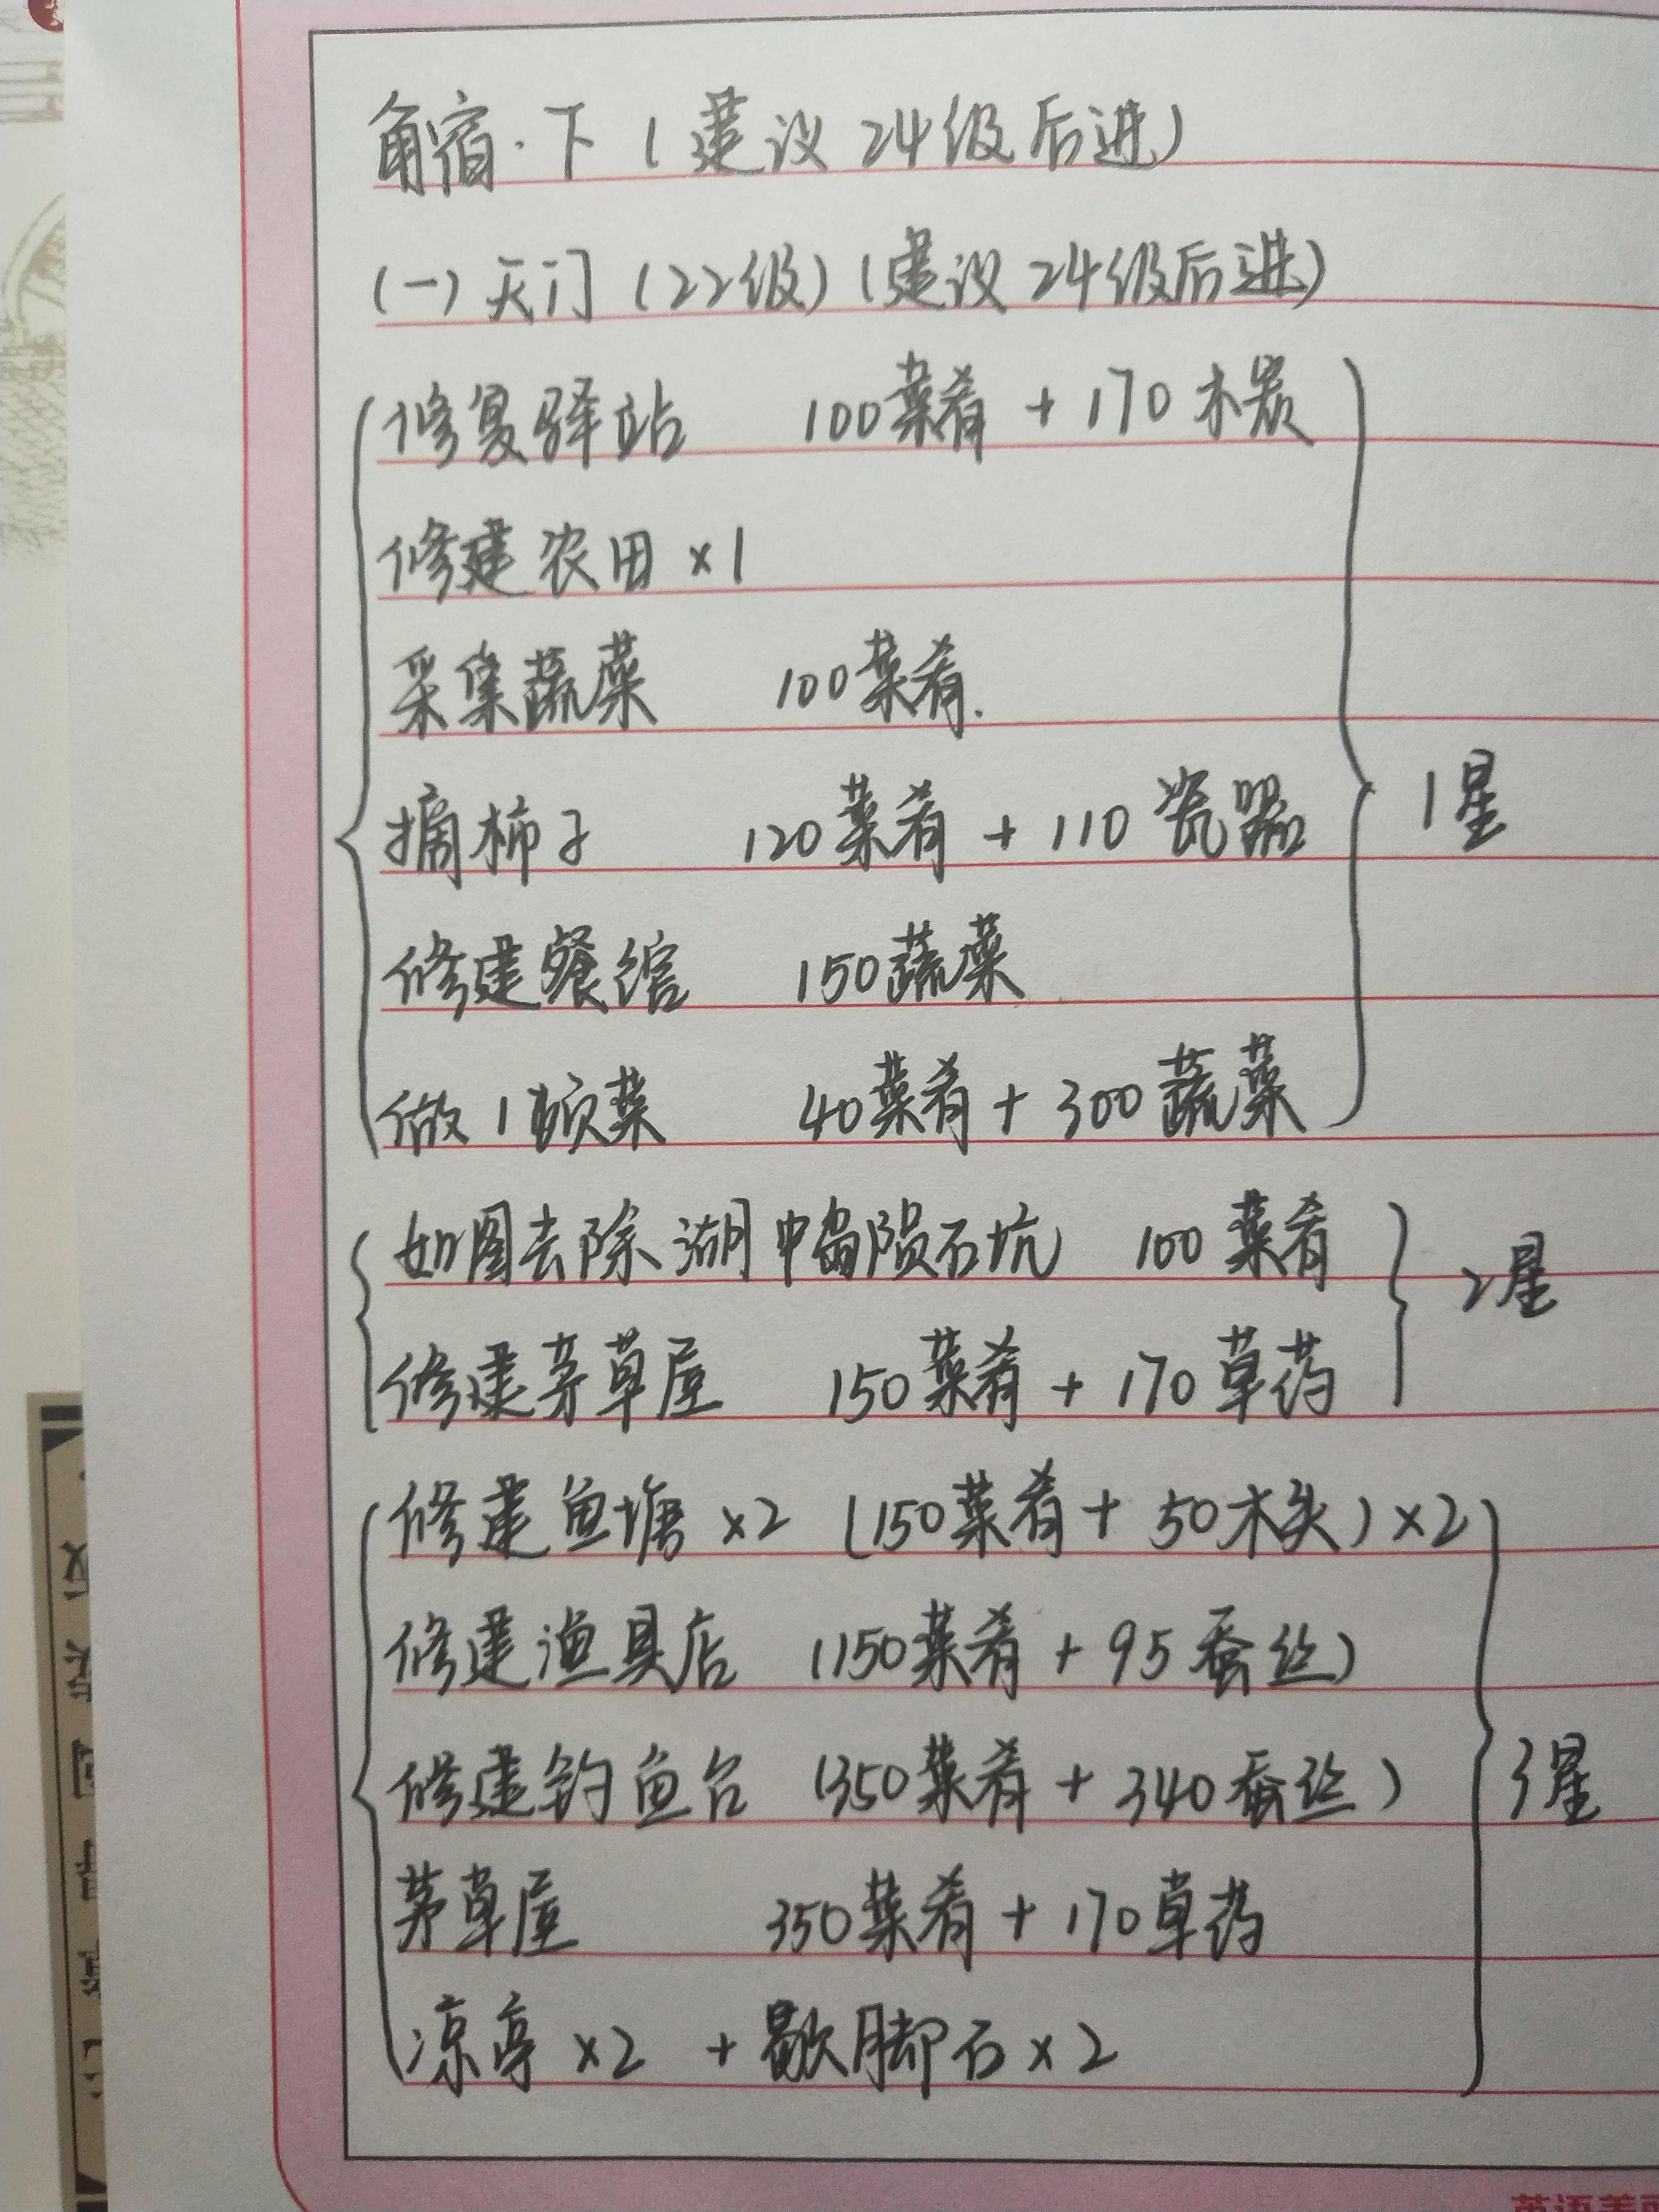 角宿·下（建议24级后进）
（一）天门（22级）（建议24级后进）
修复驿站 100菜肴 + 170木炭
修建农田×1
采集蔬菜 100菜肴.
摘柿子 120菜肴 + 110瓷器
1星
修建餐馆 150蔬菜
做1顿菜 40菜肴 + 300蔬菜
如图去除湖中岛陨石坑 100菜肴
2星
修建茅草屋 150菜肴 + 170草药
修建鱼塘×2（150菜肴 + 50木头）×2
修建渔具店（150菜肴 + 95蚕丝）
修建钓鱼台（350菜肴 + 340蚕丝）
3星
茅草屋 350菜肴 + 170草药
凉亭×2 + 歇脚石×2